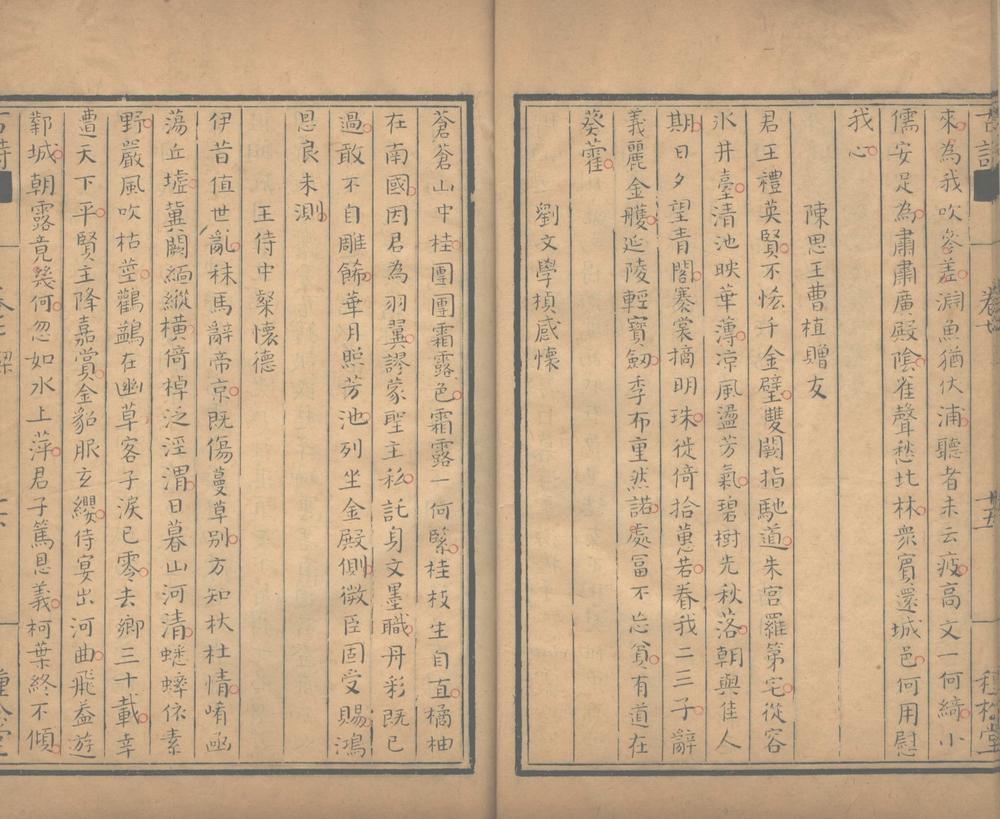 來為我吹參差淵魚猶伏浦聽者未云疲高文一何綺小
儒安足為肅肅廣殿陰雀聲愁北林衆賓還城邑何用慰
我心
陳思王曹植贈友
君王禮英賢不恡千金璧雙闕指馳道朱宮羅第宅從容
氷井臺清池映華薄涼風盪芳氣碧樹先秋落朝與佳人
期日夕望青閣褰裳摘明珠徙倚拾蕙若眷我二三子辭
義麗金雘延陵輕寶劒季布重然諾處富不忘貧有道在
葵藿
劉文學楨感懷
蒼蒼山中桂團團霜露色霜露一何緊桂枝生自直橘柚
在南國因君為羽翼謬蒙聖主私託身文墨職丹彩既已
過敢不自雕餙華月照芳池列坐金殿側微臣固受賜鴻
恩良未測
王侍中粲懷德
伊昔值世亂秣馬辭帝京既傷蔓草別方知杕杜情崤函
蕩丘墟冀闕緬縱橫倚棹泛涇渭日暮山河清蟋蟀依素
野嚴風吹枯莖鸛鷁在幽草客子淚已零去鄉三十載幸
遭天下平賢主降嘉賞金貂服玄纓侍宴出河曲飛葢遊
鄴城朝露竟幾何忽如水上萍君子篤恩義柯葉終不傾